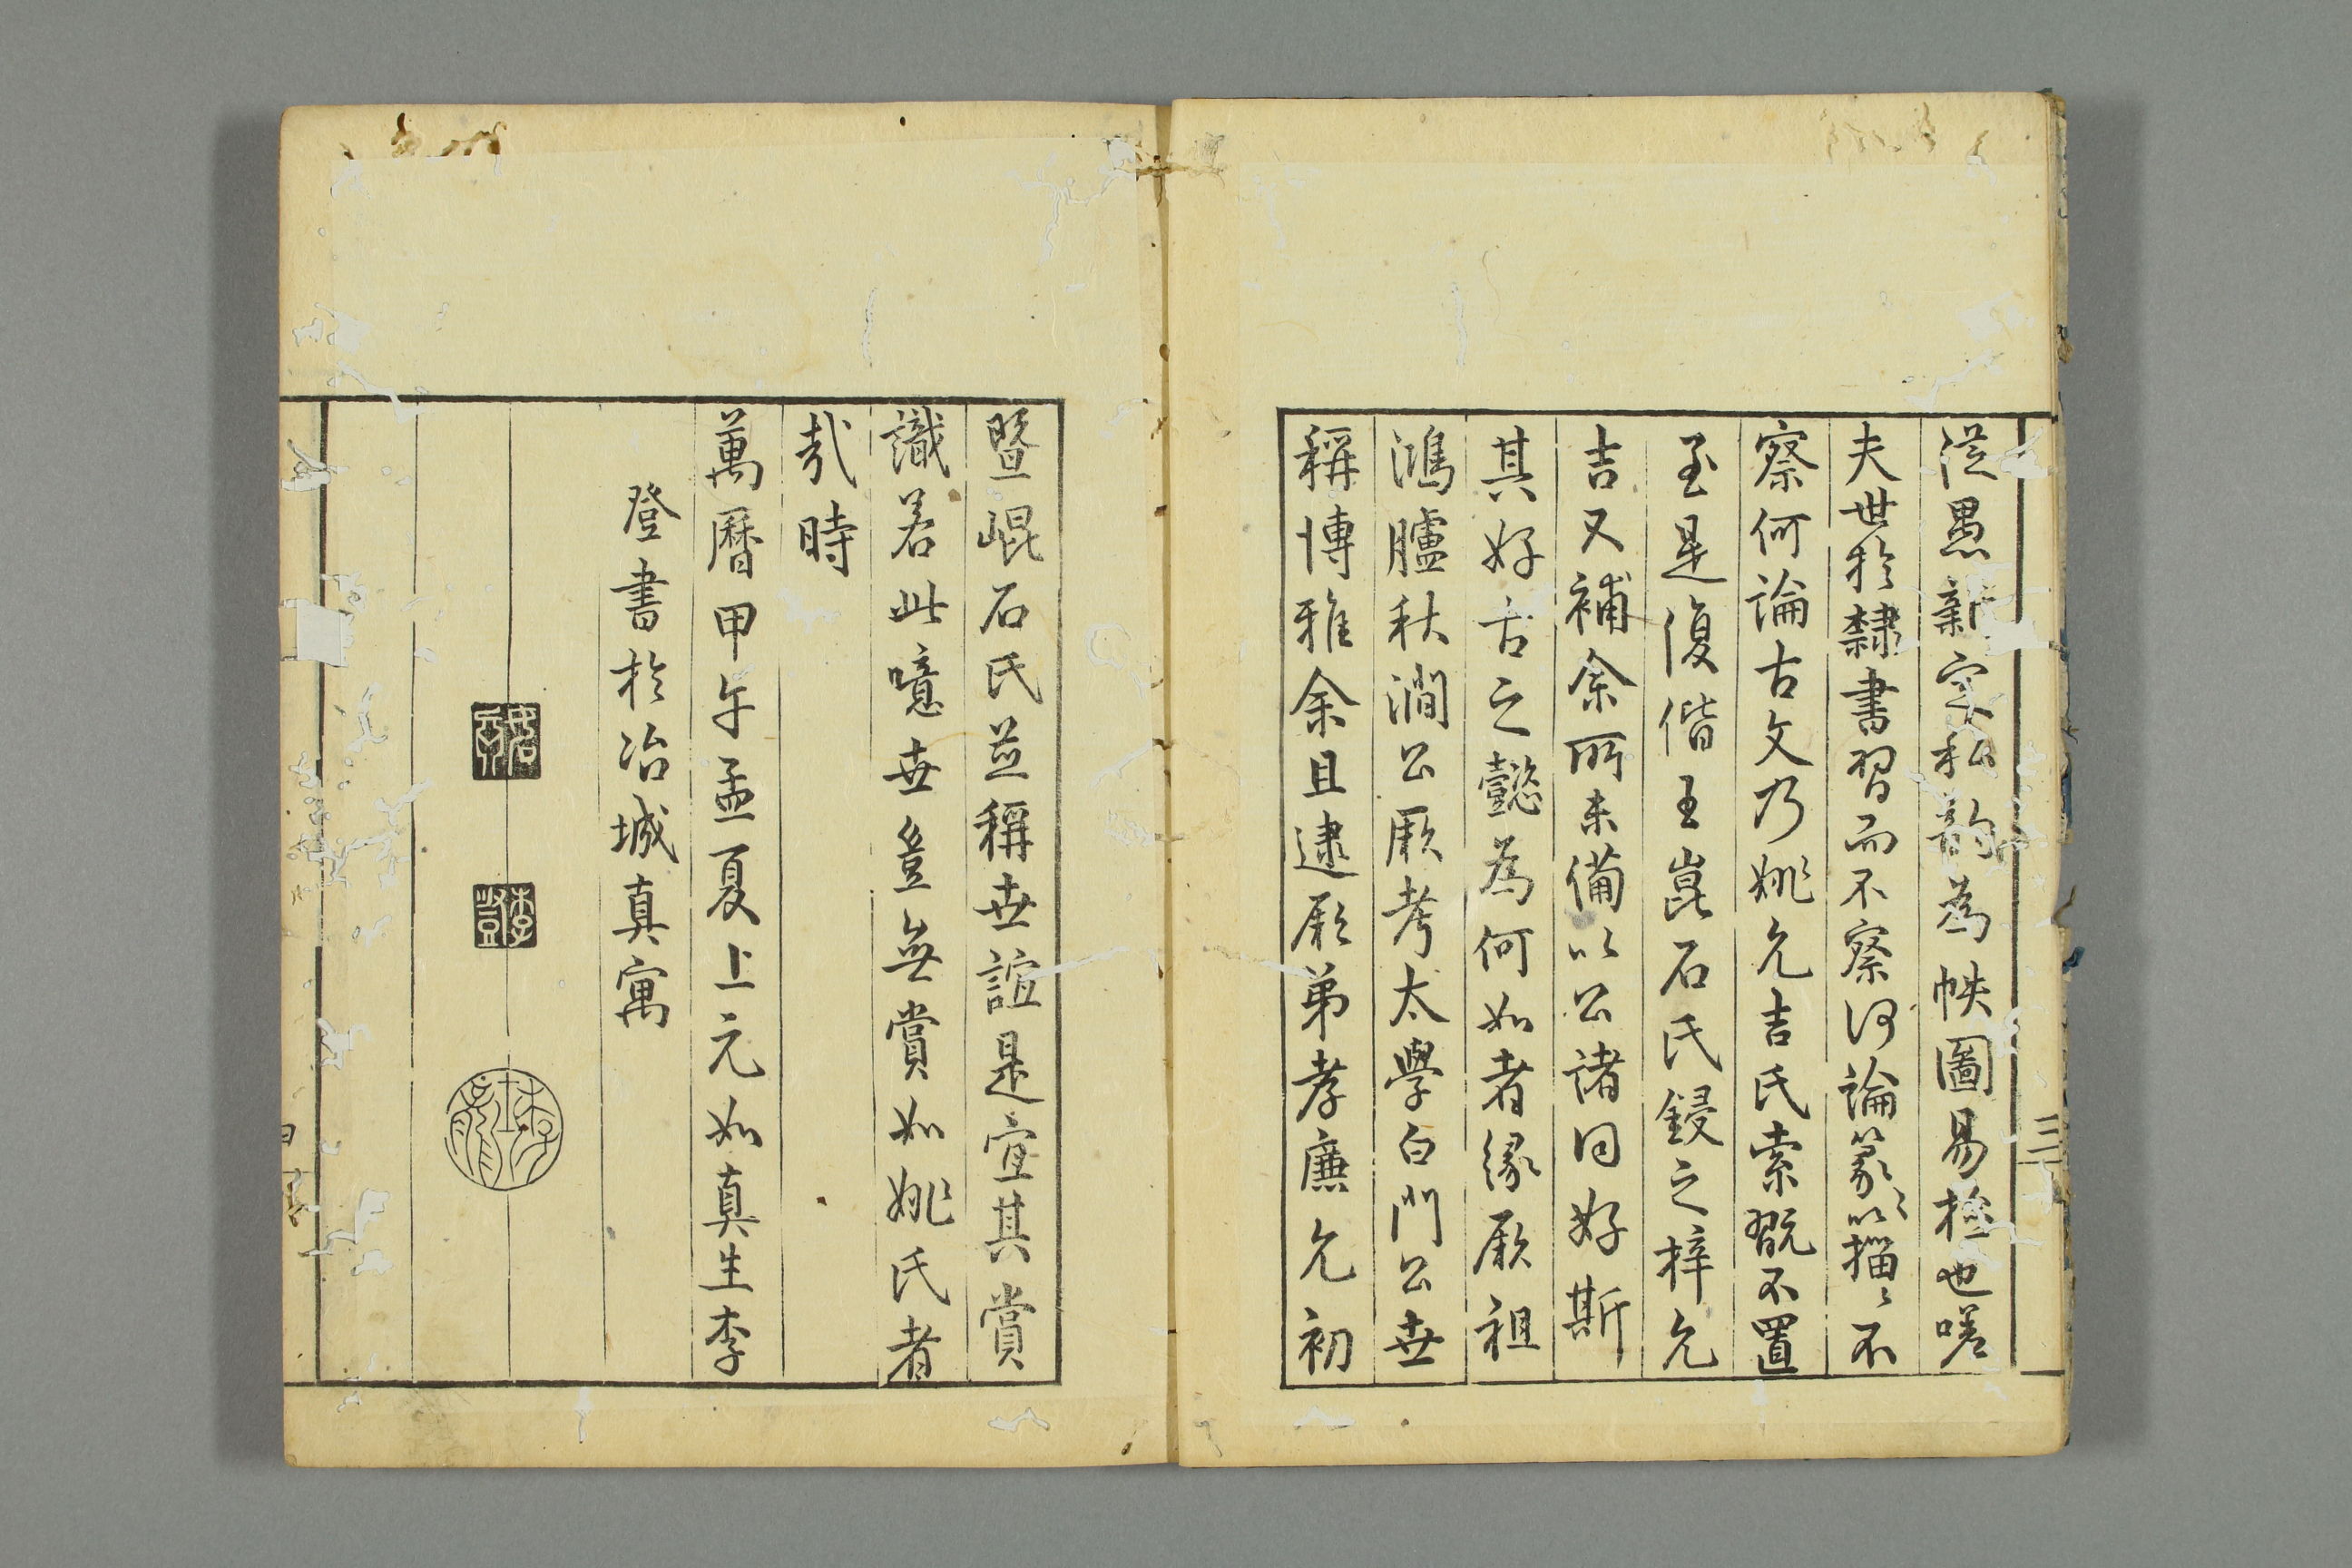 從愚新定私韵為帙圖易檢也嗟
夫世於隸書習而不察何論篆〻以描〻不
察何論古文乃姚允吉氏索翫不置
至是復偕王崑石氏鋟之梓允
吉又補余所未備以公諸同好斯
其好古之懿為何如者緣厥祖
鴻臚秋澗公厥考太學白門公世
稱博雅余且逮厥弟孝廉允初
暨崐石氏並稱世誼是宜其賞
識若此噫世豈無賞如姚氏者
哉時
萬曆甲午孟夏上元如真生李
登書於冶城真寓
李登
三